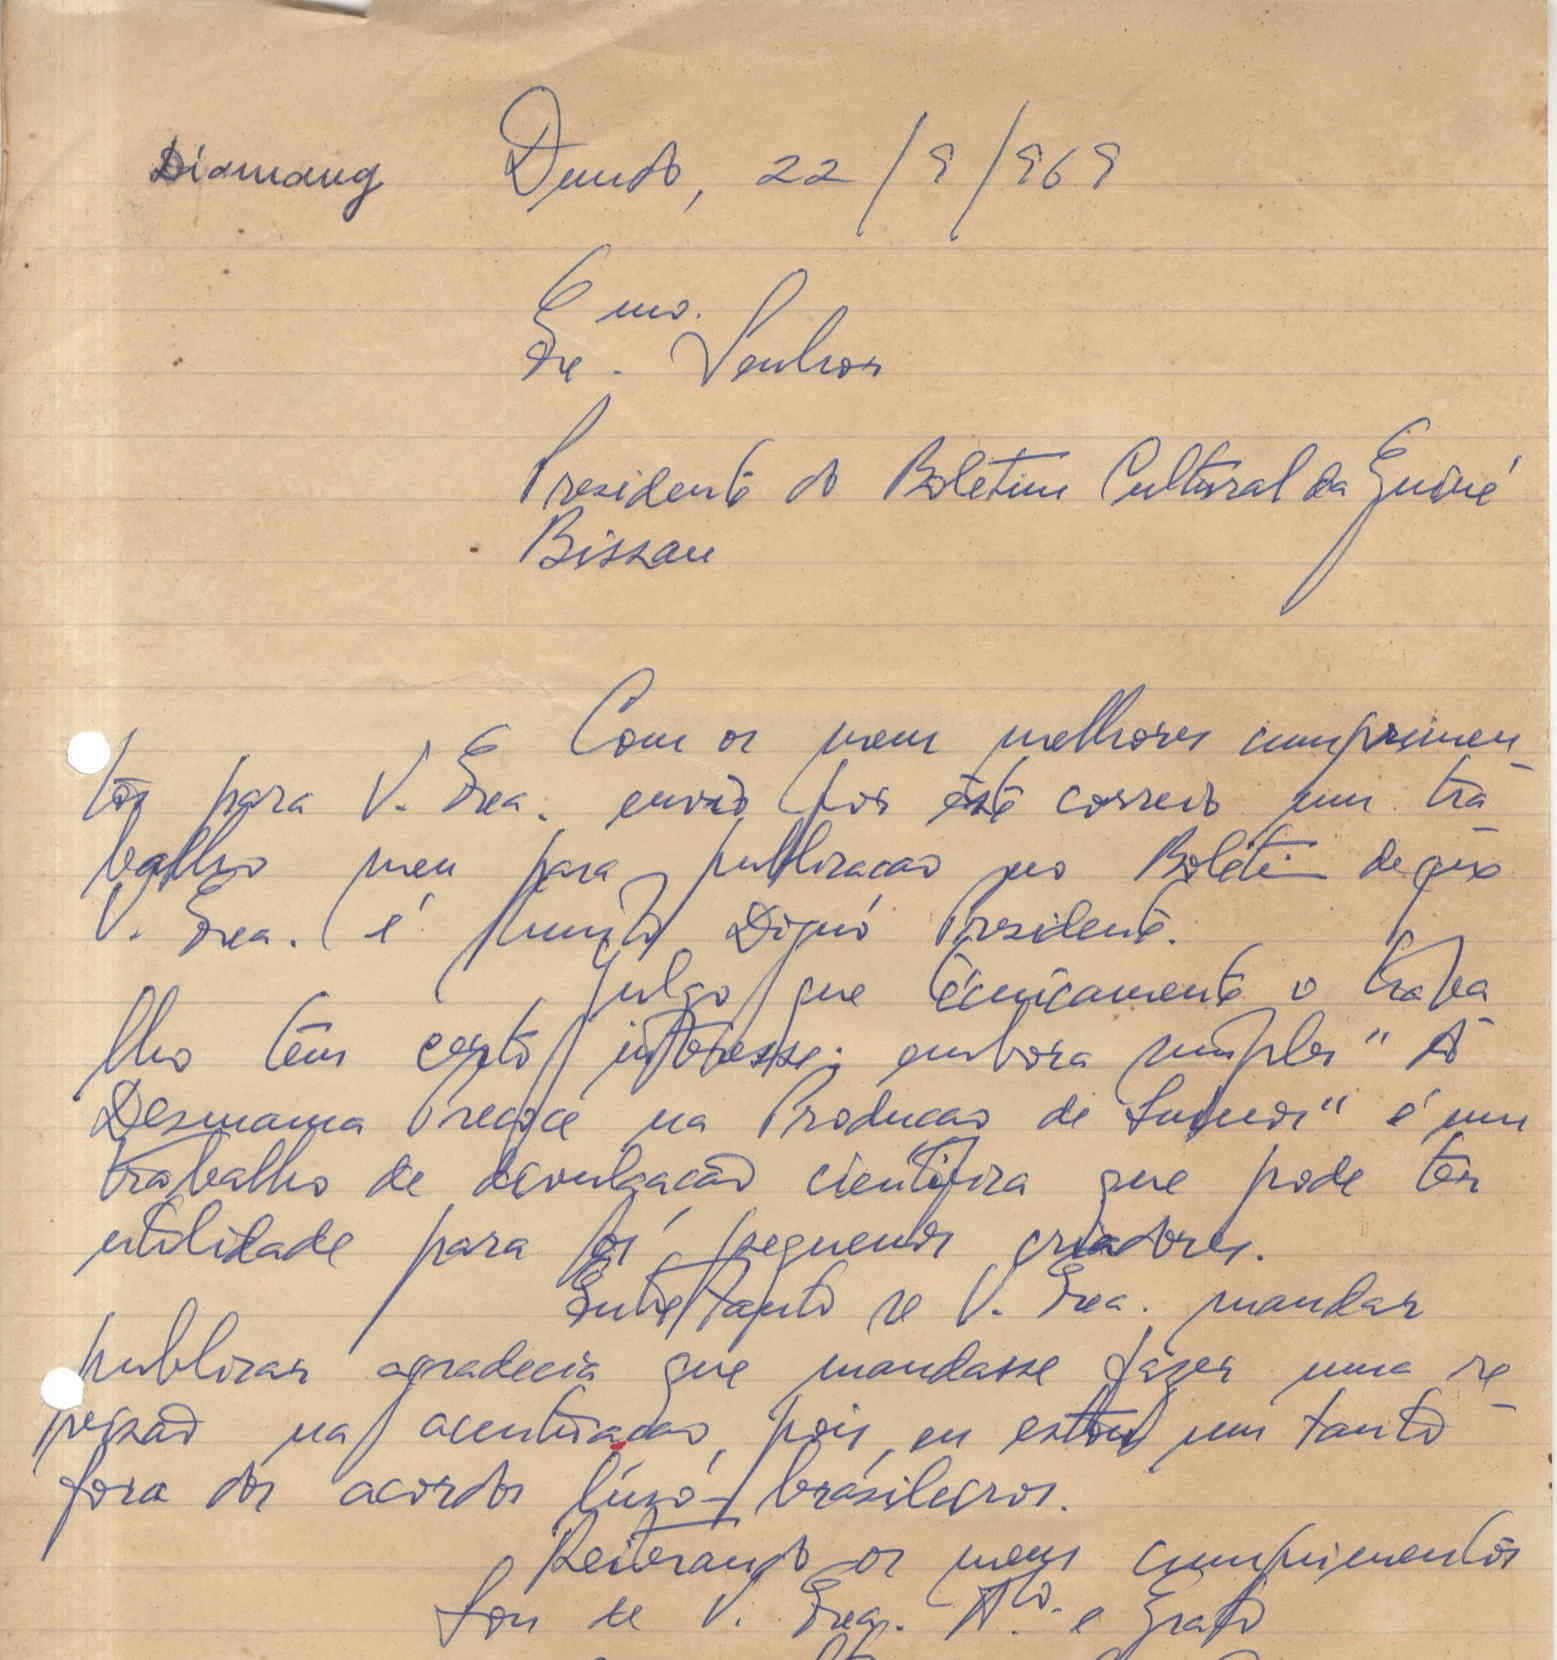 Diamang Dundo, 22/9/969
Exmo.
Sr. Senhor
Presidente do Boletim Cultural da Guiné
Bissau
Com os meus melhores cumprimen
tos para V. Exca. envio por êste correio um tra-
balho meu para publicacao no Boletim de que
V. Exca. é Muito Digno Presidente.
Julgo que técnicamente o traba
lho têm certo interesse; embora simples "A
Desmama Precoce na Producao de Suinos" é um
trabalho de divulgacão cientifica que pode ter
utilidade para os pequenos criadores.
Entretanto se V. Exca. mandar
publicar agradecia que mandasse fazer uma re
visão na acentuacao, pois eu estou um tanto
fora dos acordos lúso-brasileiros.
Reiterando os meus cumprimentos
Sou de V. Exca. Ato. e Grato